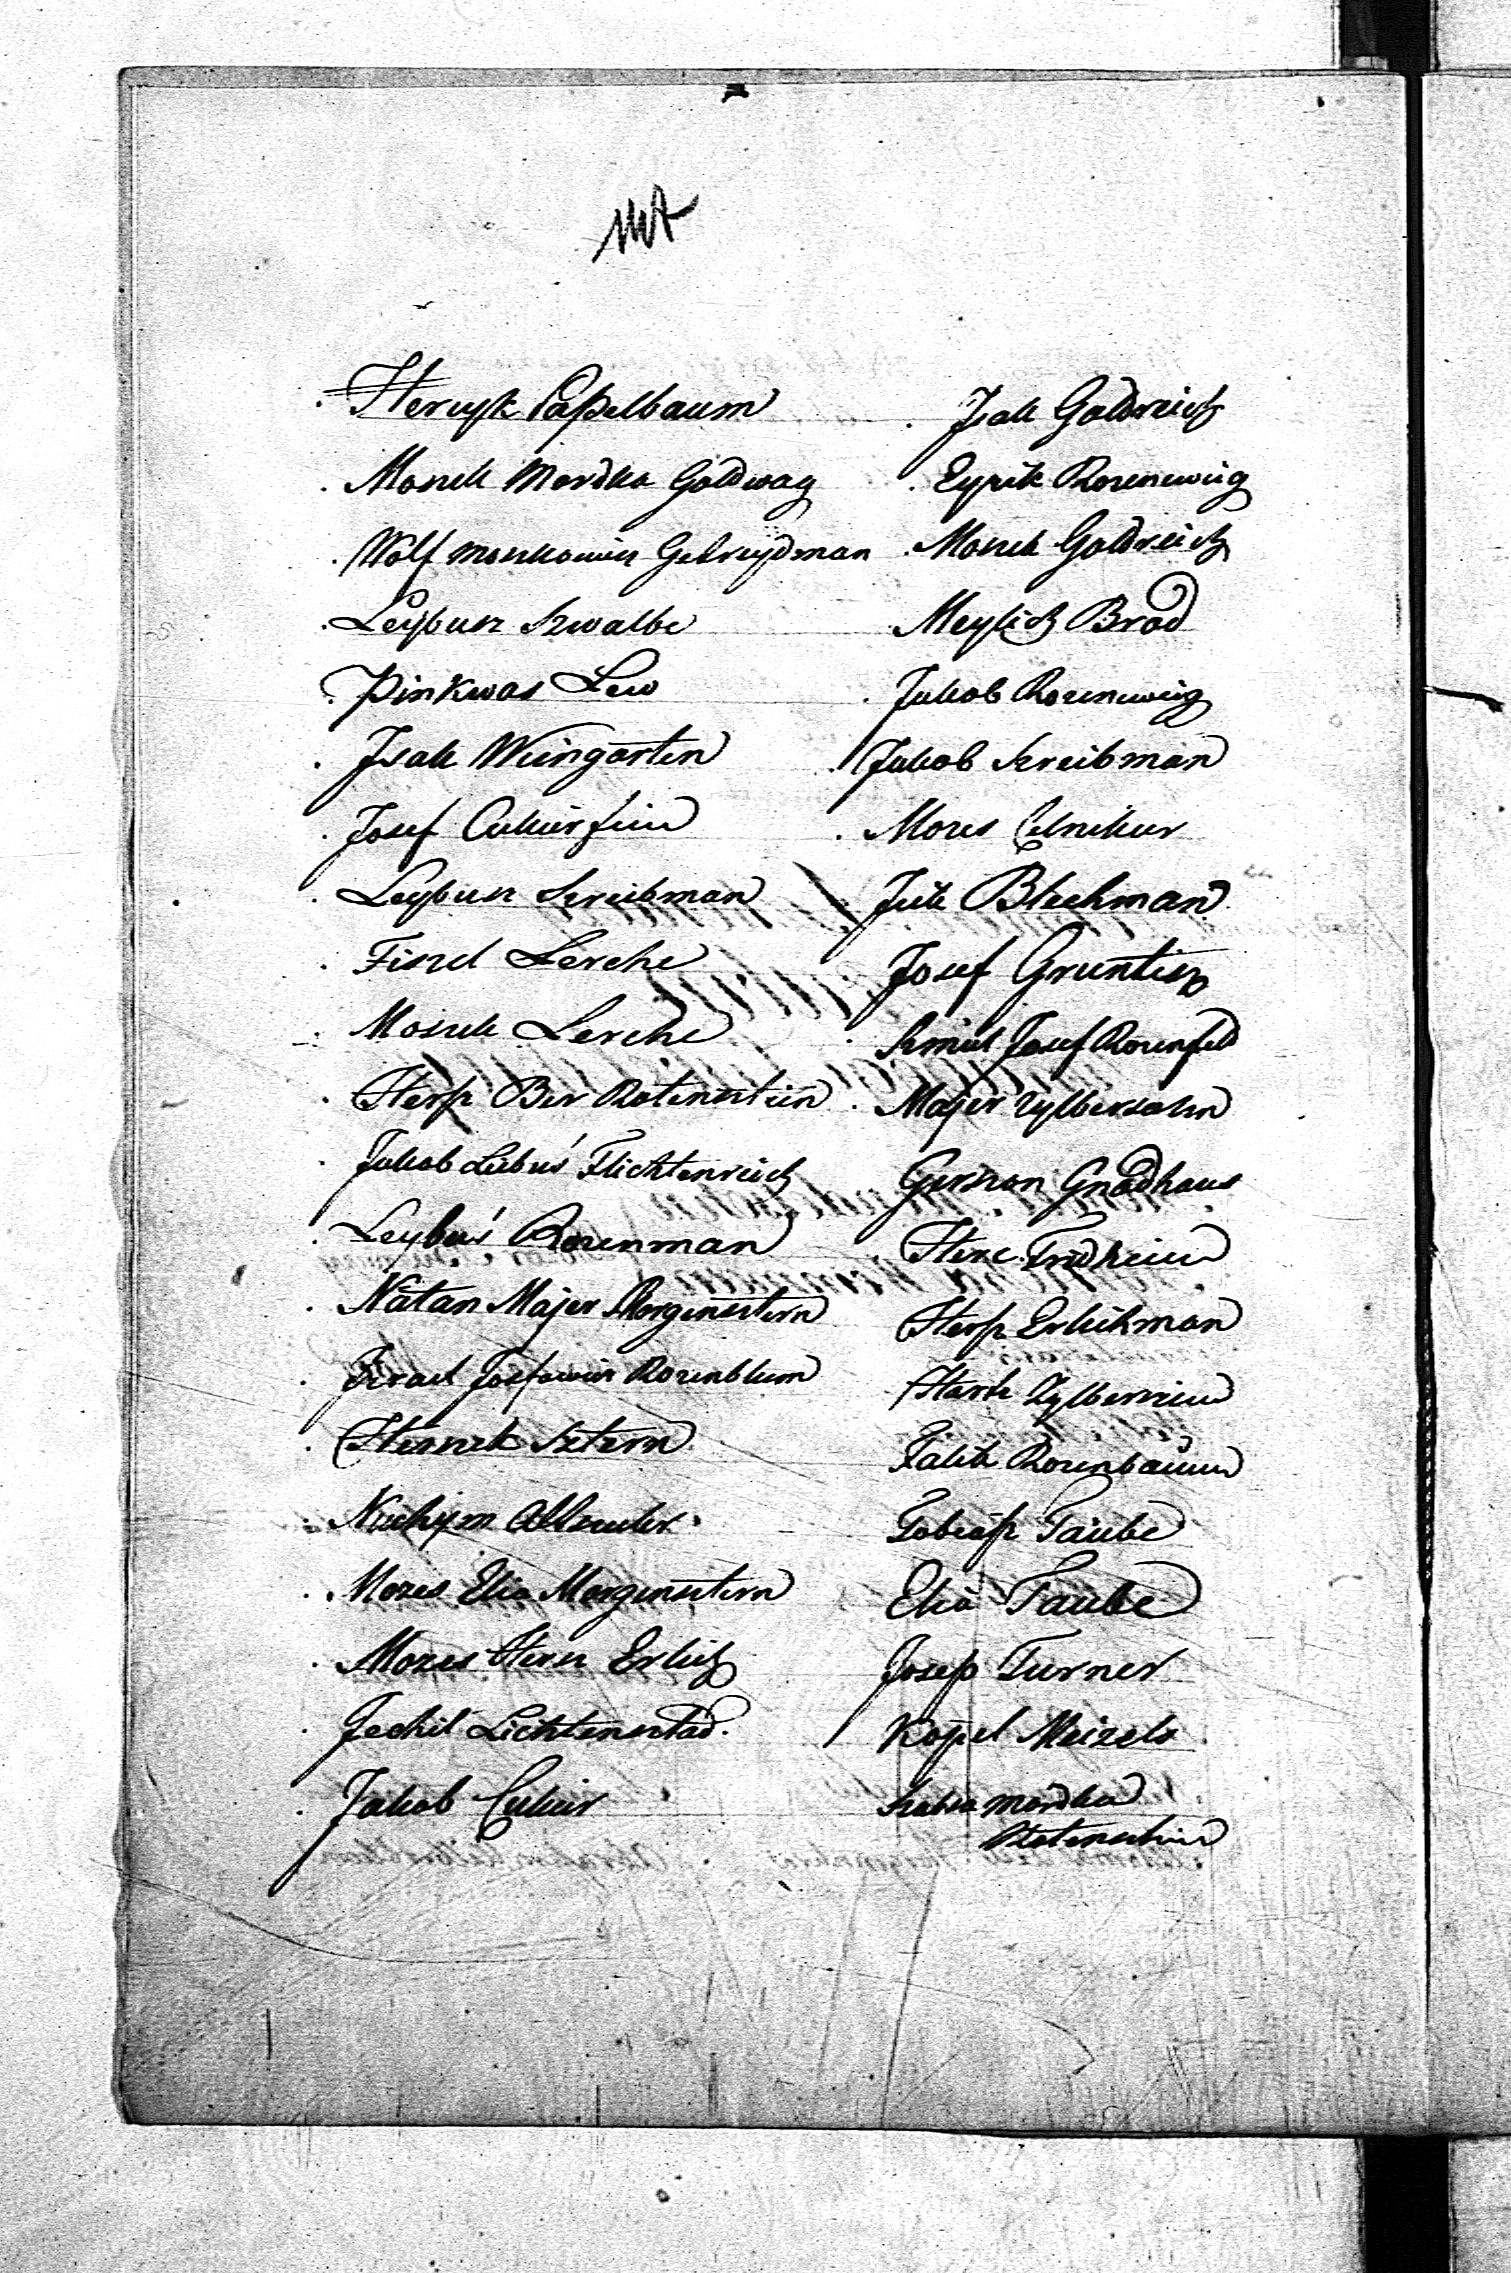 Hercyk Apßelbaum
Mosiek Mordka Goldwag
Wolf Moszkowicz Getreydman
Leybusz Szwalbe
Pinkwas Lew
Isak Weingarten
Josef Cukierfein
Leybusz Szreibman
Fiszel Lerche
Mosiek Lerche
Herß Ber Rotensztein
Jakob Leibuś Flichtenreich
Leybuś Rozenman
Natan Majer Morgensztern
Izrael Josfowicz Rozenblum
Hersziek Sztern
Nuchym
Mozes Elia Morgensztern
Mozes Hersz Erlich
Jechil Lichtensztad
Jakob Cukier
Isak Goldreich
Eyzik Rozencweig
Mosiek Goldreich
Meylich Brod
Jakob Rozencweig
Jakob Szreibman
Mozes Celnikier
Icik Blechman
Josef Gruntisz
Szmul Josef Rozenfeld
Majer Zylbersohn
Gerszon Gnadhaus
Herc Frydheim
Herß Erlichman
Herk Zylbercweig
Falik Rozenbaum
Tobiaß Taube
Elia Taube
Josep Turner
Kopel Meizels
Szabsa Mordka
Rotensztein